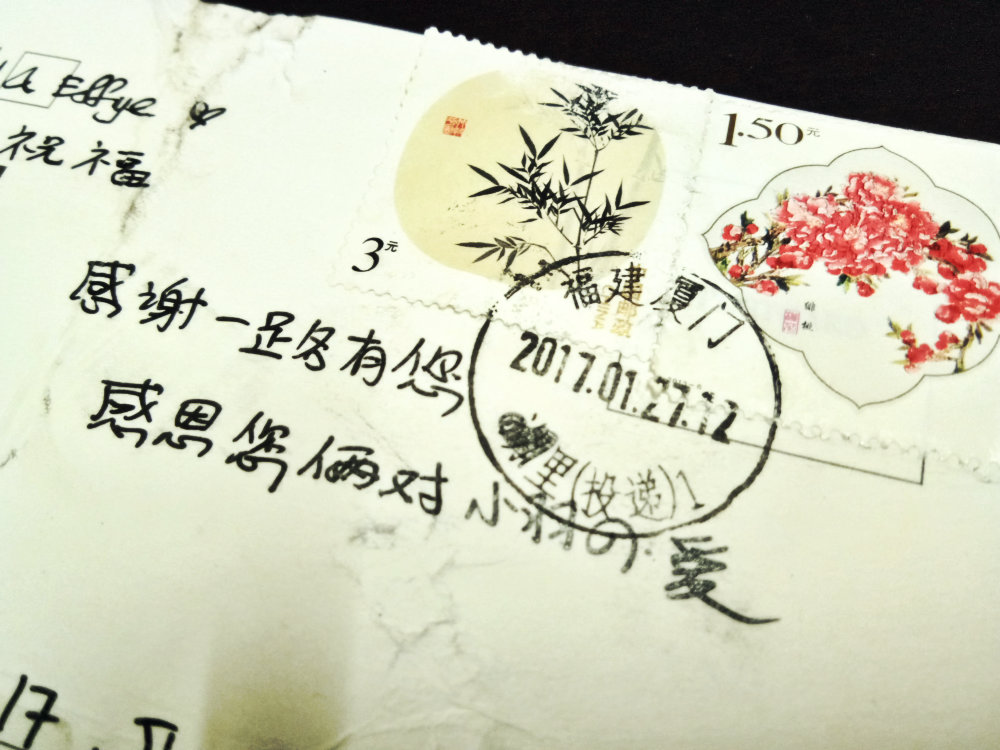 Effye
祝福
感谢一路有您
感恩您俩对小羽の爱
17
3元
1.50元
福建厦门
2017.01.27.12
里(投递)1